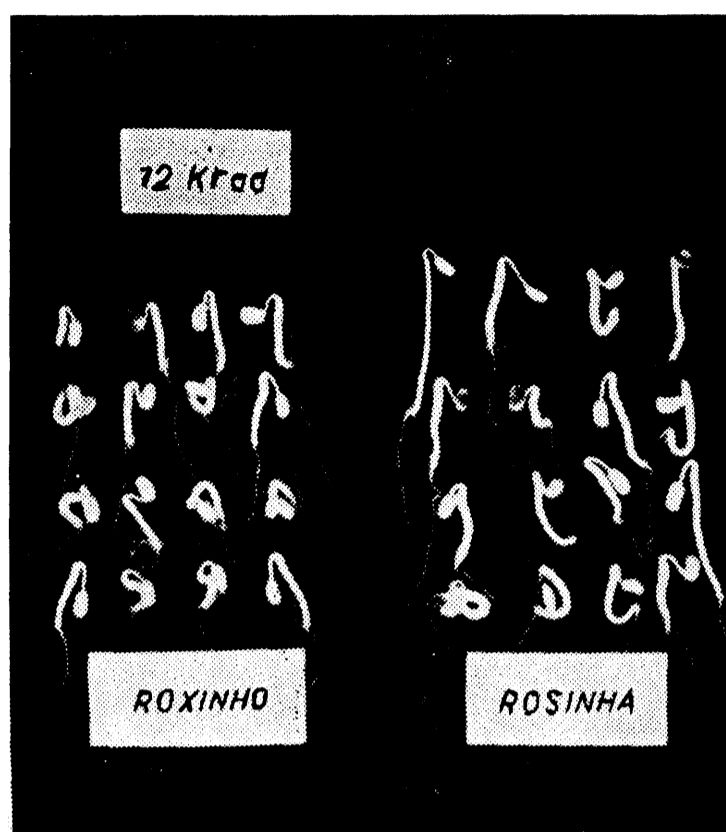 12 Krad
ROXINHO
ROSINHA